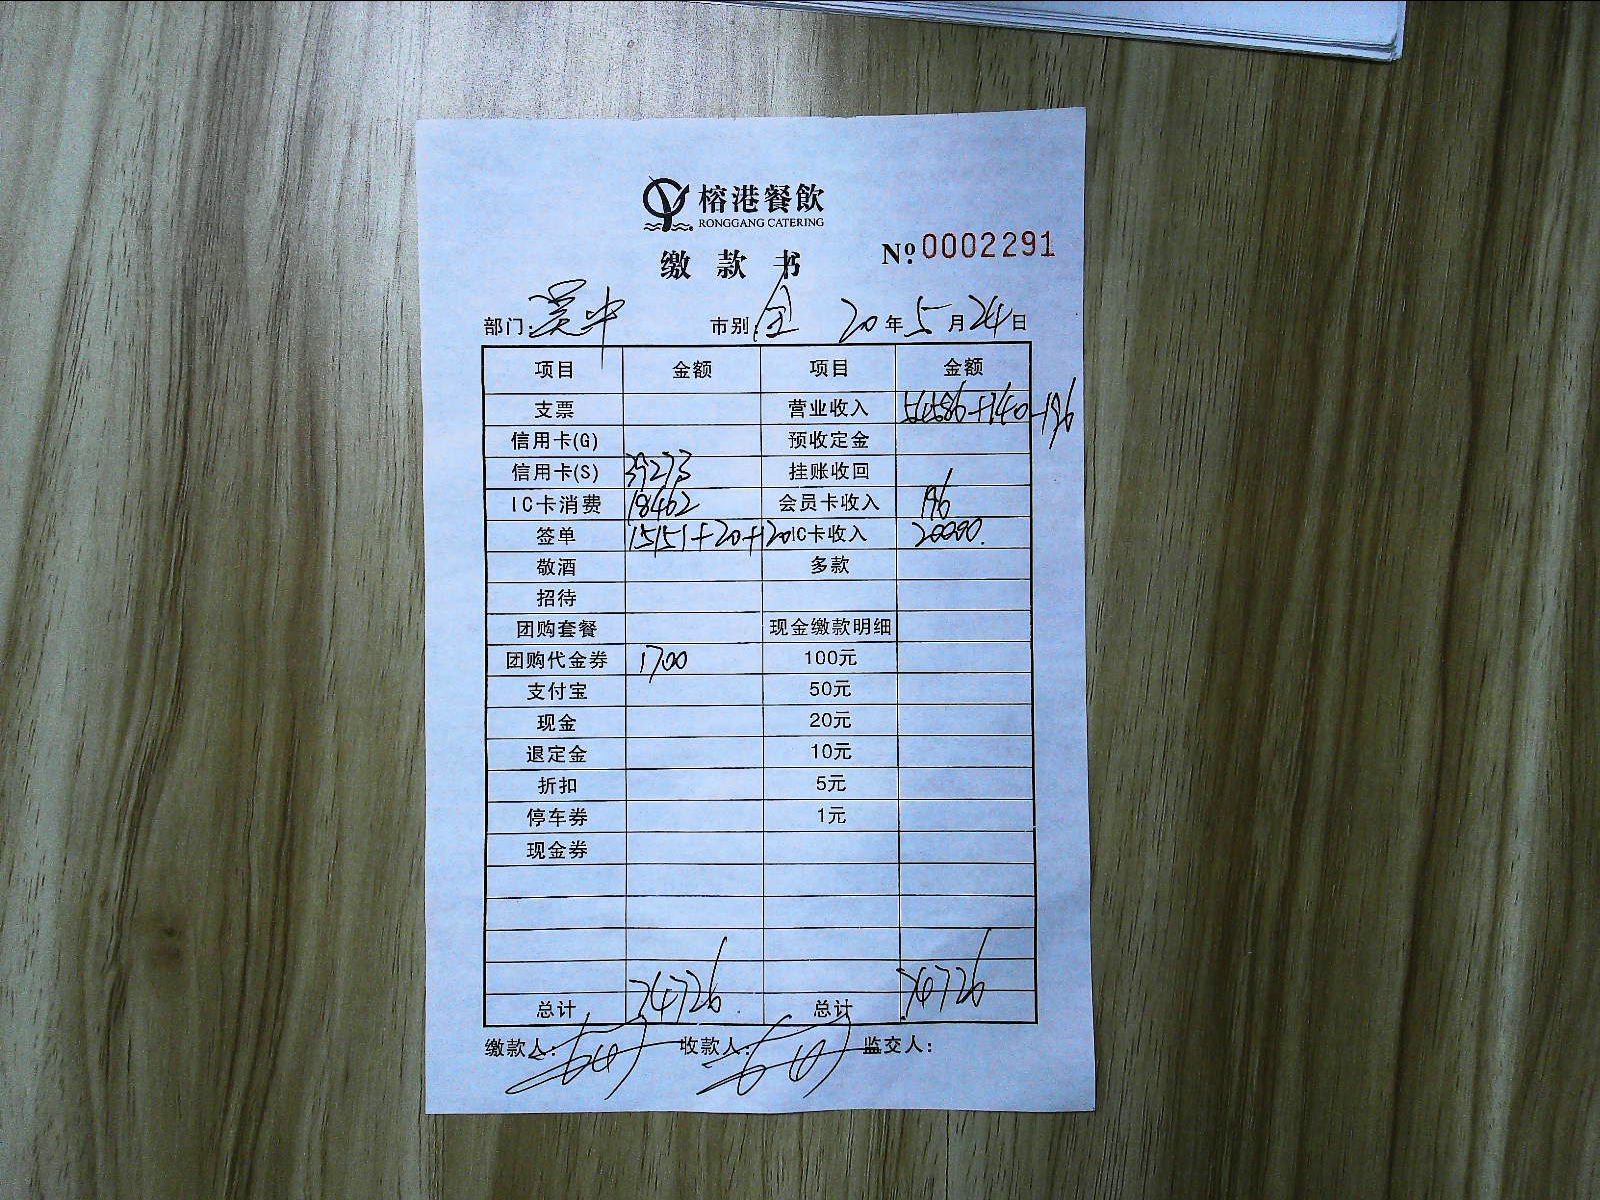 榕港餐飲
RONGGANG CATERING
缴款书 №:0002291
部门:吴中 市别:全 20年5月24日
项目 金额 项目 金额
支票 营业收入 54586+140-196
信用卡(G) 预收定金
信用卡(S) 39273 挂账收回
IC卡消费 18462 会员卡收入 196
签单 15151+20+120 IC卡收入 20000.
敬酒 多款
招待
团购套餐 现金缴款明细
团购代金券 1700 100元
支付宝 50元
现金 20元
退定金 10元
折扣 5元
停车券 1元
现金券
总计 74726. 总计 74726
缴款人: 收款人: 监交人: